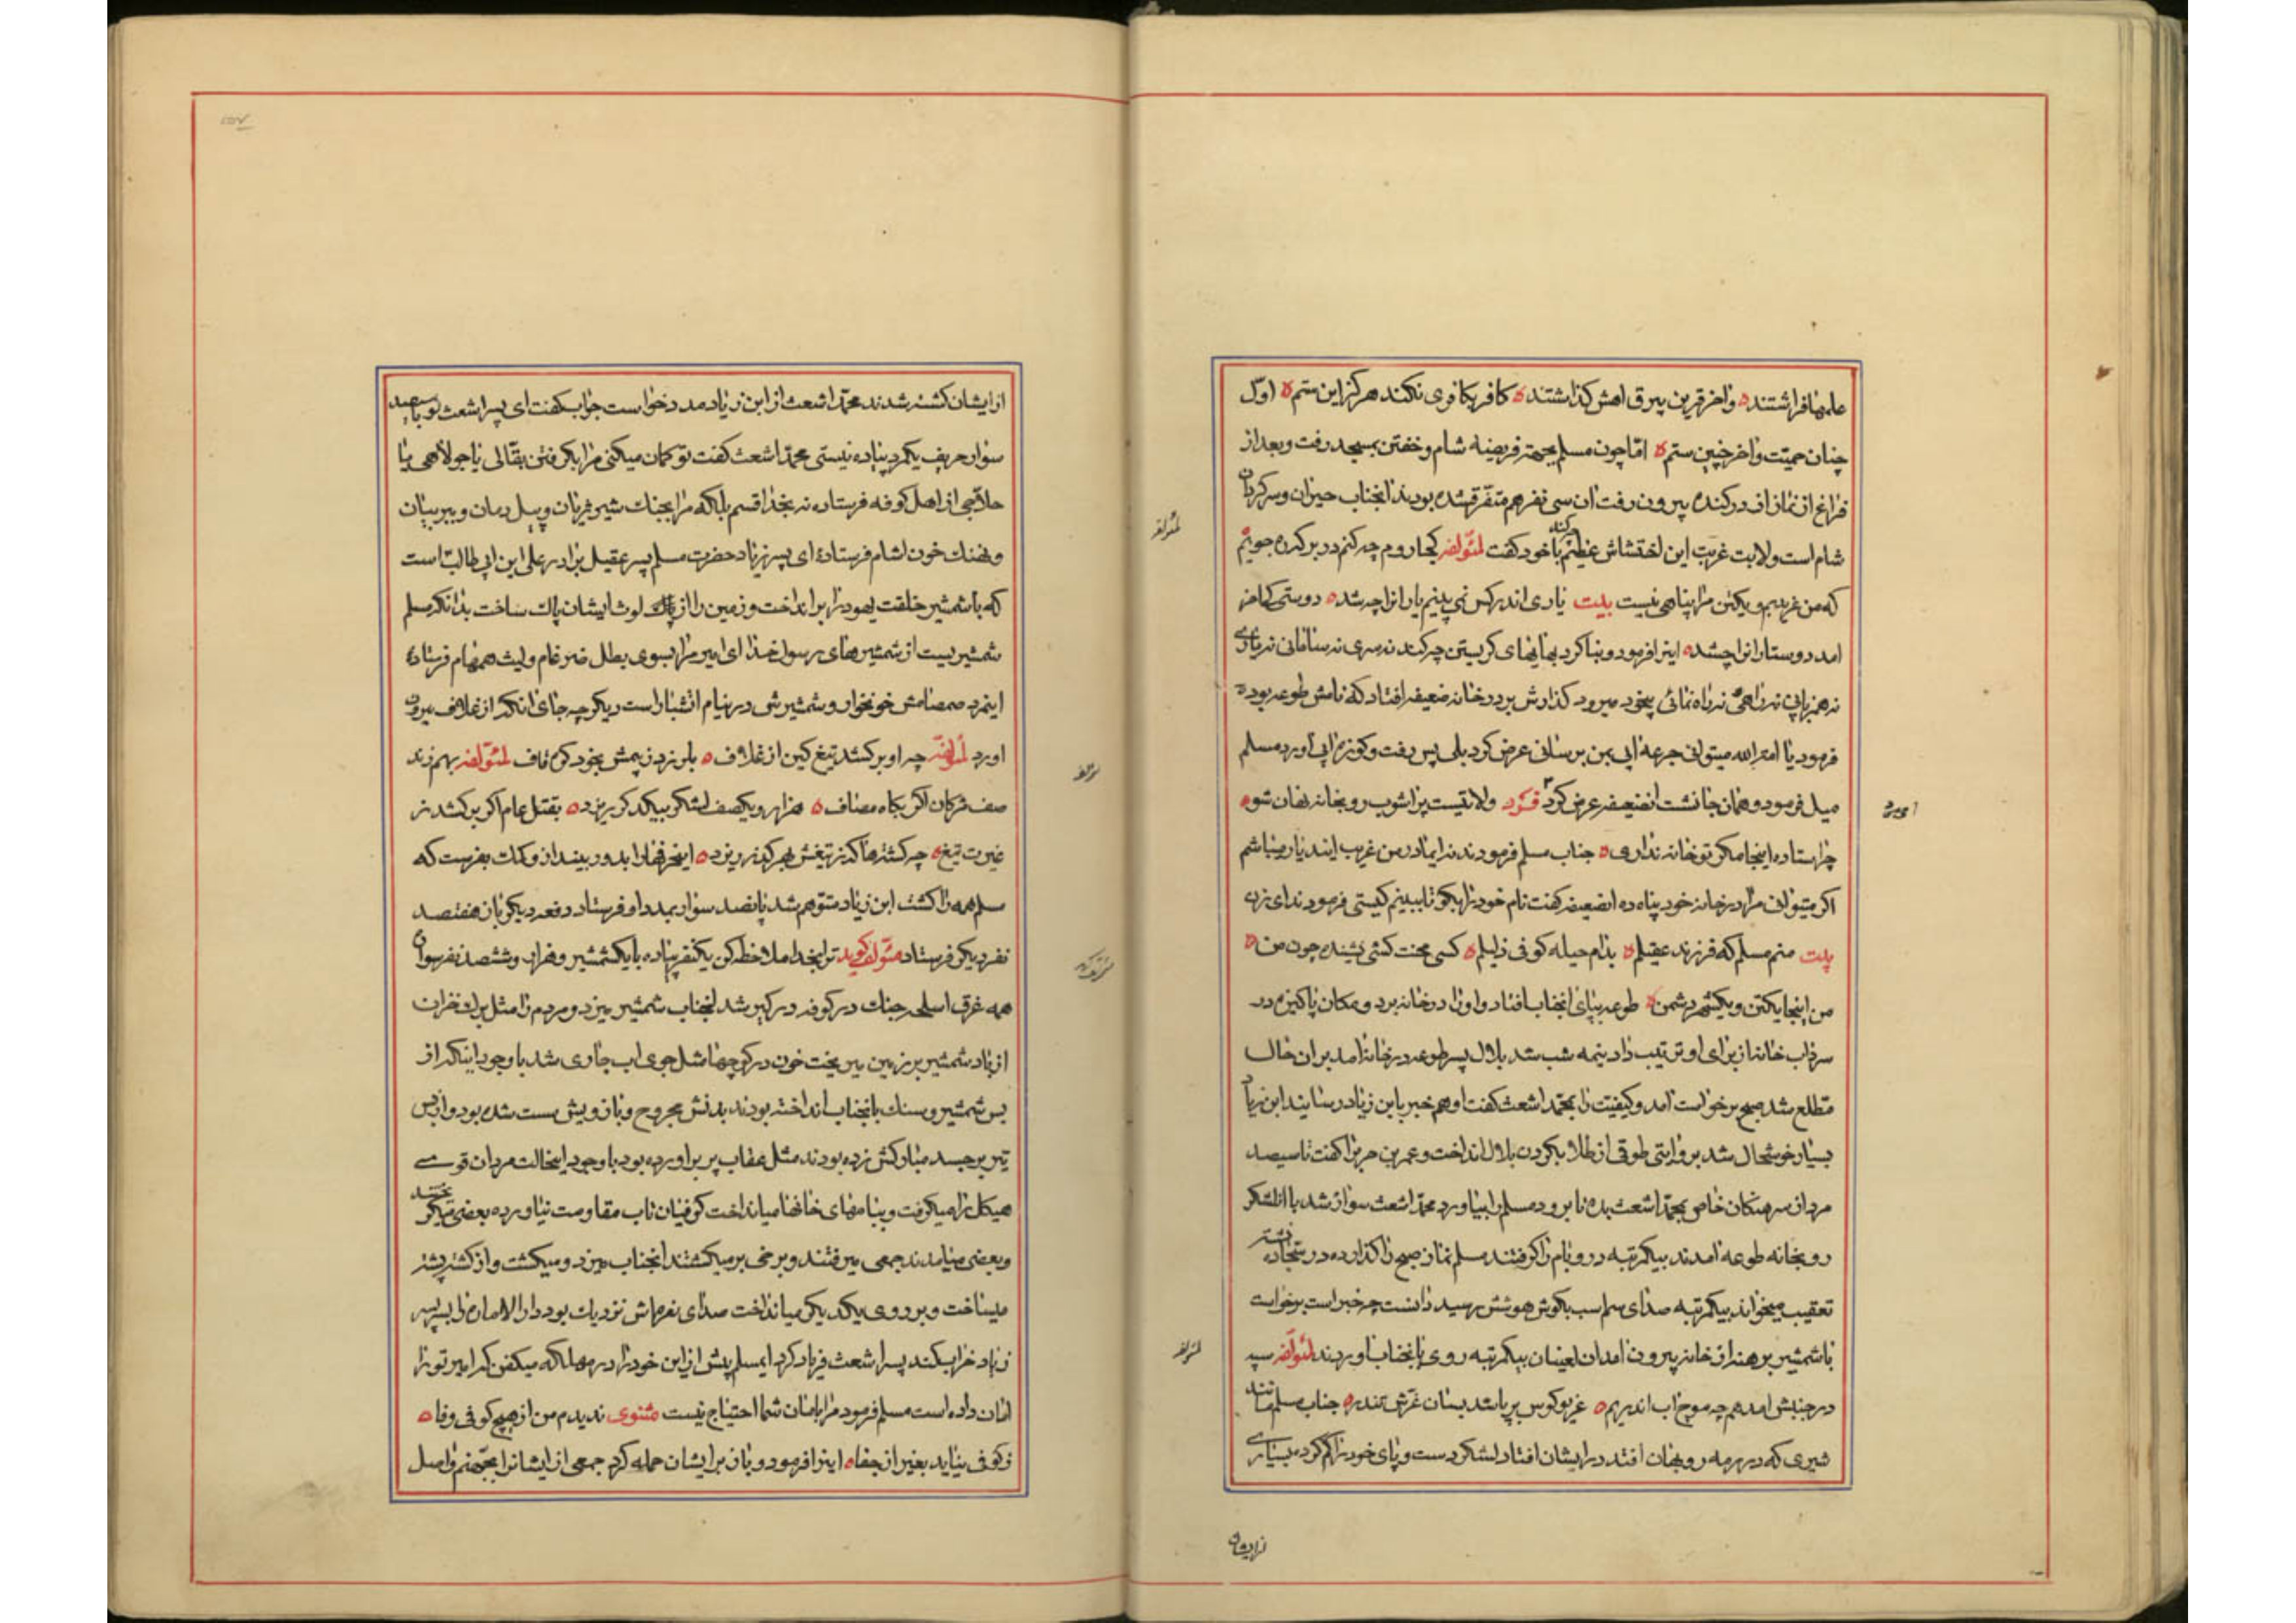 علمها افراشتند ه واخر قرین بیرق اهش کذاشتند ه کافر بکافری نکند هرکز این ستم ه اول
چنان حمیت واخر چنین ستم ه امّا چون مسلم بجهتهٔ فریضه شام و خفتن بمسجد رفت و بعد از
فراغ از نماز از در کنده بیرون رفت ان سی نفر هم متفرّق شده بودند انجناب حیران و سرکردان
شام است و ولایت غربت این اختشاش عظیم با خود کفت لمؤلفه کجا روم چه کنم در بر که ره جویم
که من غریبم و یکتن مرا پناهی نیست بیت یاری اندر کس نمی بینم یارانرا چه شد ه دوستی کی اخر
امد دوستدارانرا چشد ه اینرا فرمود و بنا کرد بهایهای کریستن چه کند نه سری نه سامانی نه یاری
نه همزبانی نه راهی نه راه نمائی بیخود میرود کذارش بر در خانه ضعیفه افتاد که نامش طوعه بود ه
فرمود یا امة الله میتوانی جرعه ابی بمن برسانی عرض کرد بلی پس رفت و کوزه ابی اورد مسلم
میل فرمود و همان جا نشست انضعیفه عرض کرد فرد ولایتیست پراشوب رو بخانه نهان شو ه
چرا ستاده اینجا مکر تو خانه نداری ه جناب مسلم فرمودند ای مادر من غریب ایندیار میباشم
اکر میتوانی مرا در خانه خود پناه ده انضعیفه کفت نام خود را بکو تا ببینم کیستی فرمودند ای زن
بیت منم مسلم که فرزند عقیلم ه بدام حیله کوفی ذلیلم ه کسی محنت کشی نشنیده چون من ه
من اینجا یکتن و یکشهر دشمن ه طوعه بپای انجناب افتاد و اورا در خانه برد و مکان پاکیزه در
سرداب خانه از برای او ترتیب داد نیمه شب شد بلال پسر طوعه در خانه امد بر ان حال
مطلع شد صبح برخواست امد و کیفیت را بمحمّد اشعث کفت او هم خبر بابن زیاد رسانید ابن زیاد
بسیار خوشحال شد بروایتی طوقی از طلا بکردن بلال انداخت و عمر بن حریرا کفت تا سیصد
مرد از سرهنکان خاص بمحمّد اشعث بده تا برود مسلم را بیاورد محمّد اشعث سوار شد با انلشکر
رو بخانه طوعه امدند بیکمرتبه در و بام را کرفتند مسلم نماز صبح را کذارده در سجّاده نشسته
تعقیب میخواند بیکمرتبه صدای سم اسب بکوش هوشش رسید دانست چه خبر است برخواست
با شمشیر برهنه از خانه بیرون امد ان لعینان بیکمرتبه روی بانجناب اوردند لمؤلفه سپه
در جنبش امد هم چه موج اب اندر یم ه غریو کوس بر باشد بسان غرّش تندر ه جناب مسلم مانند
شیری که در رمه روبهان افتد در ایشان افتاد لشکر دست و پای خود را کم کرده بسیاری
از ایشان
لمؤلفه
لمؤلفه
از ایشان کشته شدند محمّد اشعث از ابن زیاد مدد خواست جواب کفت ای پسر اشعث تو با سیصد
سوار حریف یکمرد پیاده نیستی محمّد اشعث کفت تو کمان میکنی مرا بکرفتن بقّالی یا جولاهی یا
حلّاجی از اهل کوفه فرستاده نه بخدا قسم بلکه مرا بجنك شیر غرّان و پیل دمان و ببر بیان
و نهنك خون اشام فرستادهٔ ای پسر زیاد حضرت مسلم پسر عقیل برادر علی ابن ابی طالب است
که با شمشیر خلقت یهود را برانداخت و زمین را از لوث ایشان پاك ساخت بدانکه مسلم
شمشیریست از شمشیرهای رسول خدا ای امیر مرا بسوی بطل ضرغام و لیث همهام فرستادهٔ
اینمرد صمصامش خونخوار و شمشیرش در نیام اتشبار است دیکر چه جای انکه از غلاف بیرون
اورد لمؤلفه چه او برکشد تیغ کین از غلاف ه بلرزد ز بیمش بخود کوه قاف لمؤلفه بهم زند
صف ترکان اکر بکاه مصاف ه هزار و یکصف لشکر بیکدکر ریزد ه بقتل عام اکر برکشد ز
غیرت تیغ ه چه کشتها که ز تیغش بهر کذر ریزد ه اینحرفها را بدور بینداز و کمك بفرست که
مسلم همه را کشت ابن زیاد متوهم شد پانصد سوار بمدد او فرستاد دفعه دیکر باز هفتصد
نفر دیکر فرستاد مؤلف کوید ترا بخدا ملاحظه کن یکنفر پیاده با یکشمشیر و هزار و ششصد نفر سوار
همه غرق اسلحه جنك در کوفه درکیر شد انجناب شمشیر میزد و مردم را مثل برك خزان
از باد شمشیر بر زمین میریخت خون در کوچها مثل جوی اب جاری شد با وجود اینکه از
بس شمشیر و سنك بانجناب انداخته بودند بدنش مجروح و بازویش سست شده بود و از بس
تیر بر جسد مبارکش زده بودند مثل عقاب پر براورده بود با وجود اینحالت مردان قوی
هیکل را میکرفت و ببامهای خانها میانداخت کوفیان تاب مقاومت نیاورده بعضی میکریختند
و بعضی میامدند جمعی میرفتند و برخی بر میکشتند انجناب میزد و میکشت و از کشته پشته
میساخت و بر روی یکدیکر میانداخت صدای نعرهاش نزدیك بود دار الاماره را بسر پسر
زیاد خراب کند پسر اشعث فریاد کرد ایمسلم پیش از این خود را در مهلکه میفکن که امیر تو را
امان داده است مسلم فرمود مرا بامان شما احتیاج نیست مثنوی ندیدم من از هیچ کوفی وفا ه
ز کوفی نیاید بغیر از جفا ه اینرا فرمود و باز بر ایشان حمله کرد جمعی از ایشانرا بجهنّم واصل